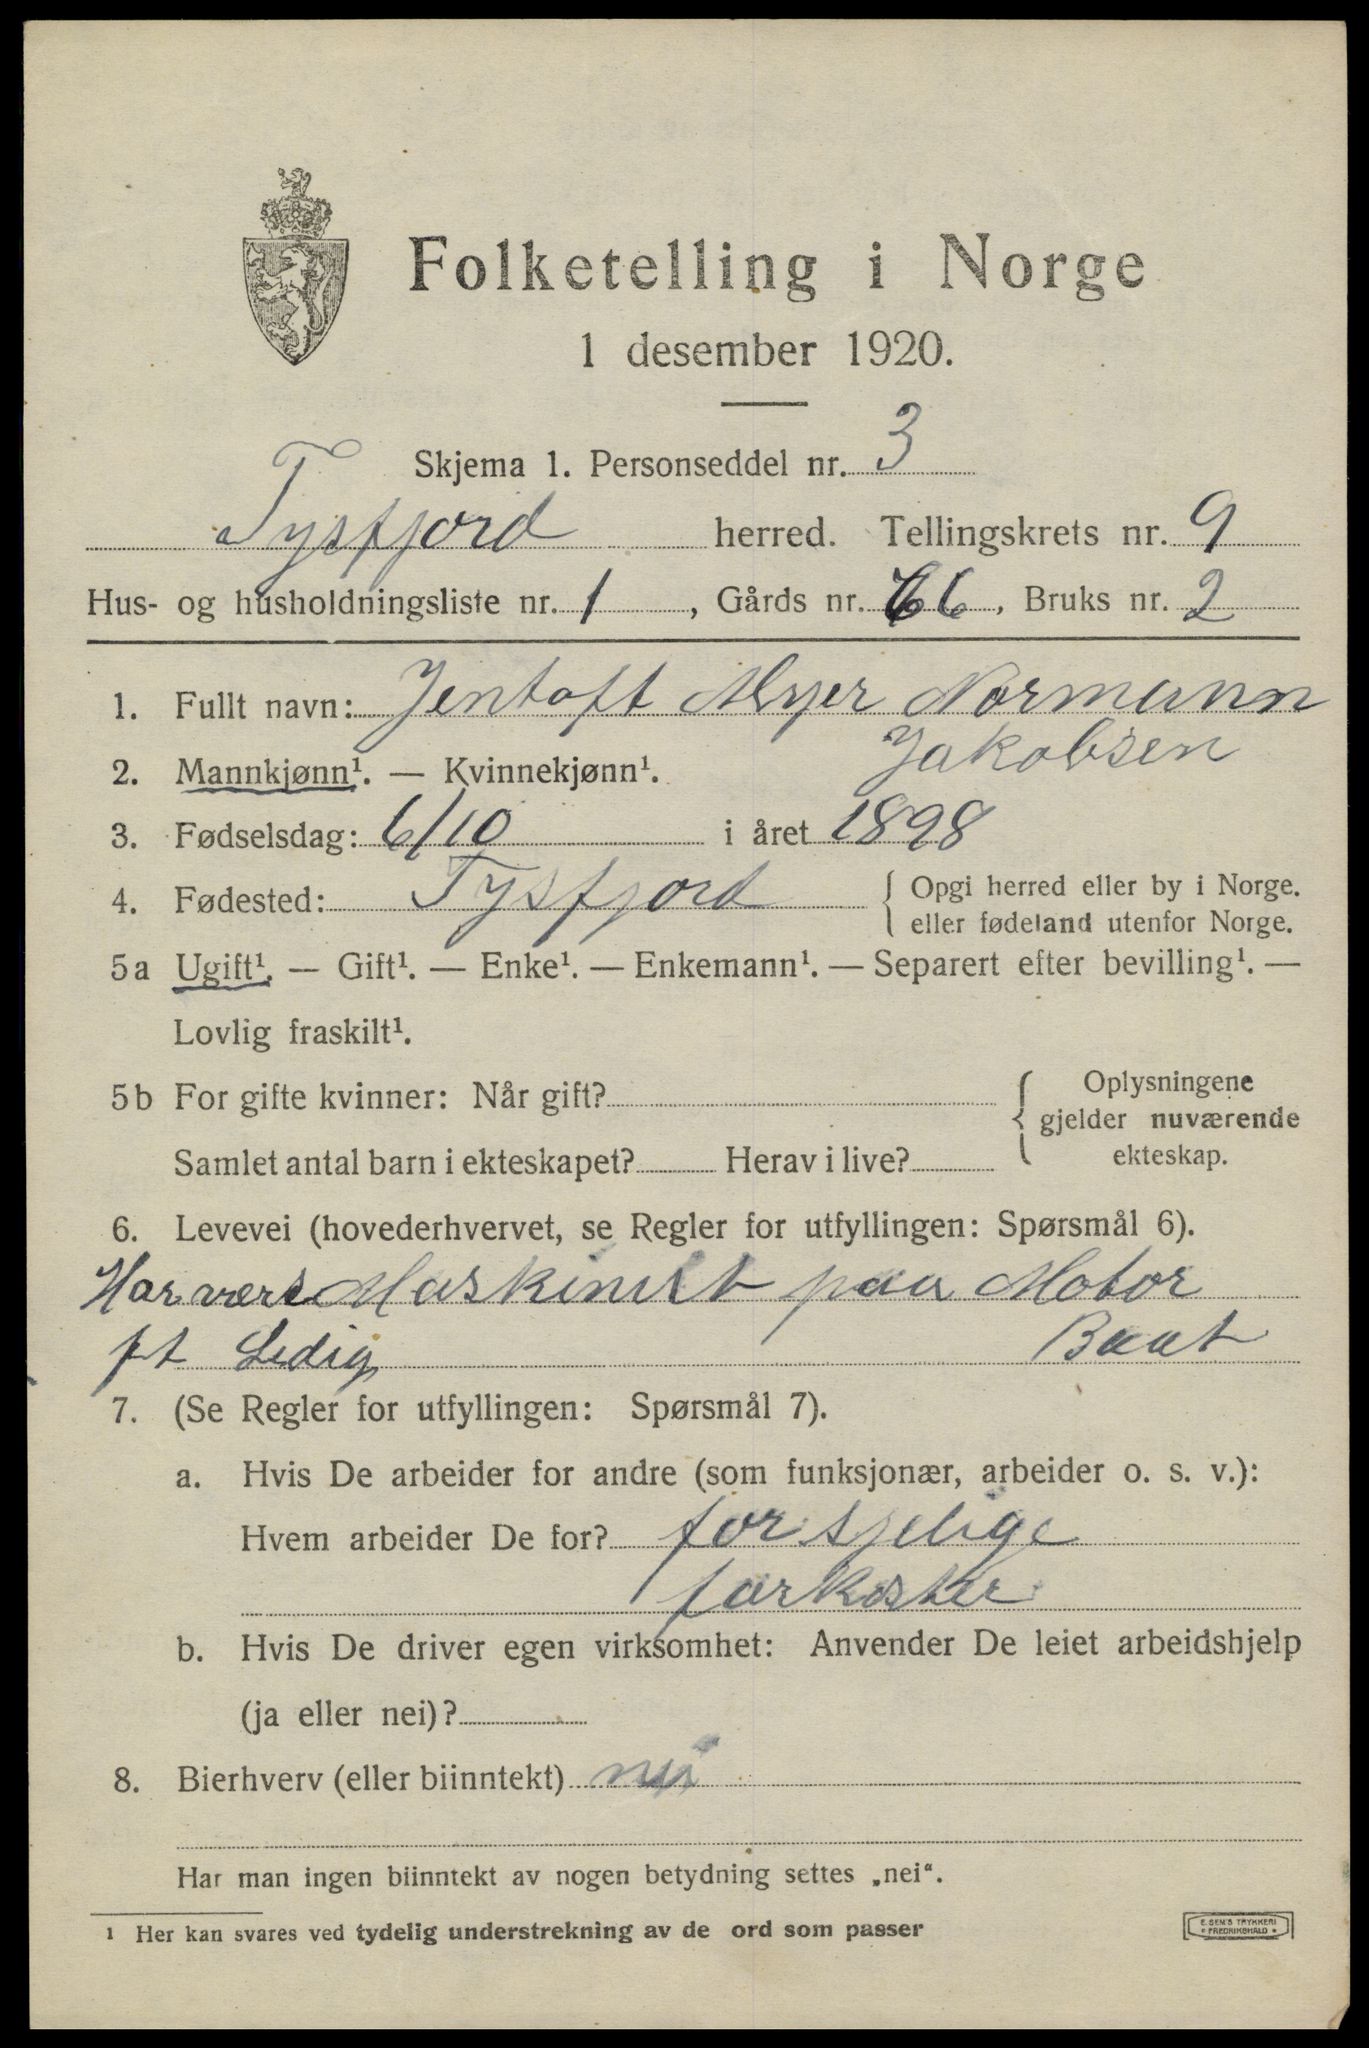 Folketelling i Norge
1 desember 1920.
Skjema 1. Personseddel nr. 3
Tysfjord herred. Tellingskrets nr. 9
Hus- og husholdningsliste nr. 1, Gårds nr. 66, Bruks nr. 2
1. Fullt navn: Jentoft Myer Normann
Jakobsen
2. Mannkjønn¹. — Kvinnekjønn¹.
3. Fødselsdag: 6/10 i året 1898
4. Fødested: Tysfjord { Opgi herred eller by i Norge.
eller fødeland utenfor Norge.
5a Ugift¹. — Gift¹. — Enke¹. — Enkemann¹. — Separert efter bevilling¹. —
Lovlig fraskilt¹.
5b For gifte kvinner: Når gift? { Oplysningene
gjelder nuværende
ekteskap.
Samlet antal barn i ekteskapet? Herav i live?
6. Levevei (hovederhvervet, se Regler for utfyllingen: Spørsmål 6).
Har vært Maskinist paa Motor
pt Ledig Baat
7. (Se Regler for utfyllingen: Spørsmål 7).
a. Hvis De arbeider for andre (som funksjonær, arbeider o. s. v.):
Hvem arbeider De for? forsjelige
farkoster
b. Hvis De driver egen virksomhet: Anvender De leiet arbeidshjelp
(ja eller nei)?
8. Bierhverv (eller biinntekt) nei
Har man ingen biinntekt av nogen betydning settes „nei“.
1 Her kan svares ved tydelig understrekning av de ord som passer
E. SEM'S TRYKKERI
FREDRIKSHALD